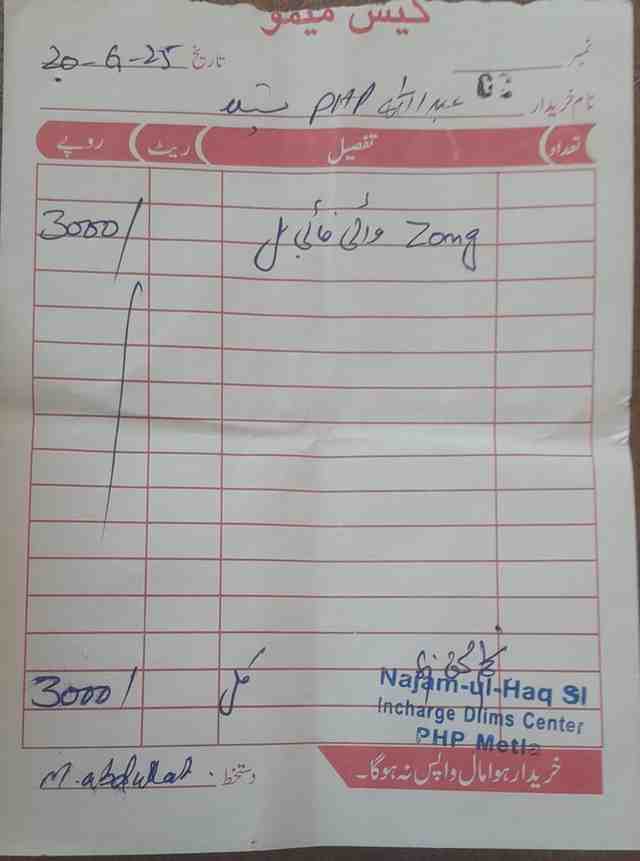 کیش میمو
نمبر تاریخ 20-6-25
نام خریدار عبداللہ PHP
تعداد تفصیل ریٹ روپے
Zong وائی فائی بل 3000/
کل 3000/
Najam-ul-Haq SI
Incharge Dlims Center
PHP Metla
خریدا ہوا مال واپس نہ ہوگا۔
دستخط M. abdullah